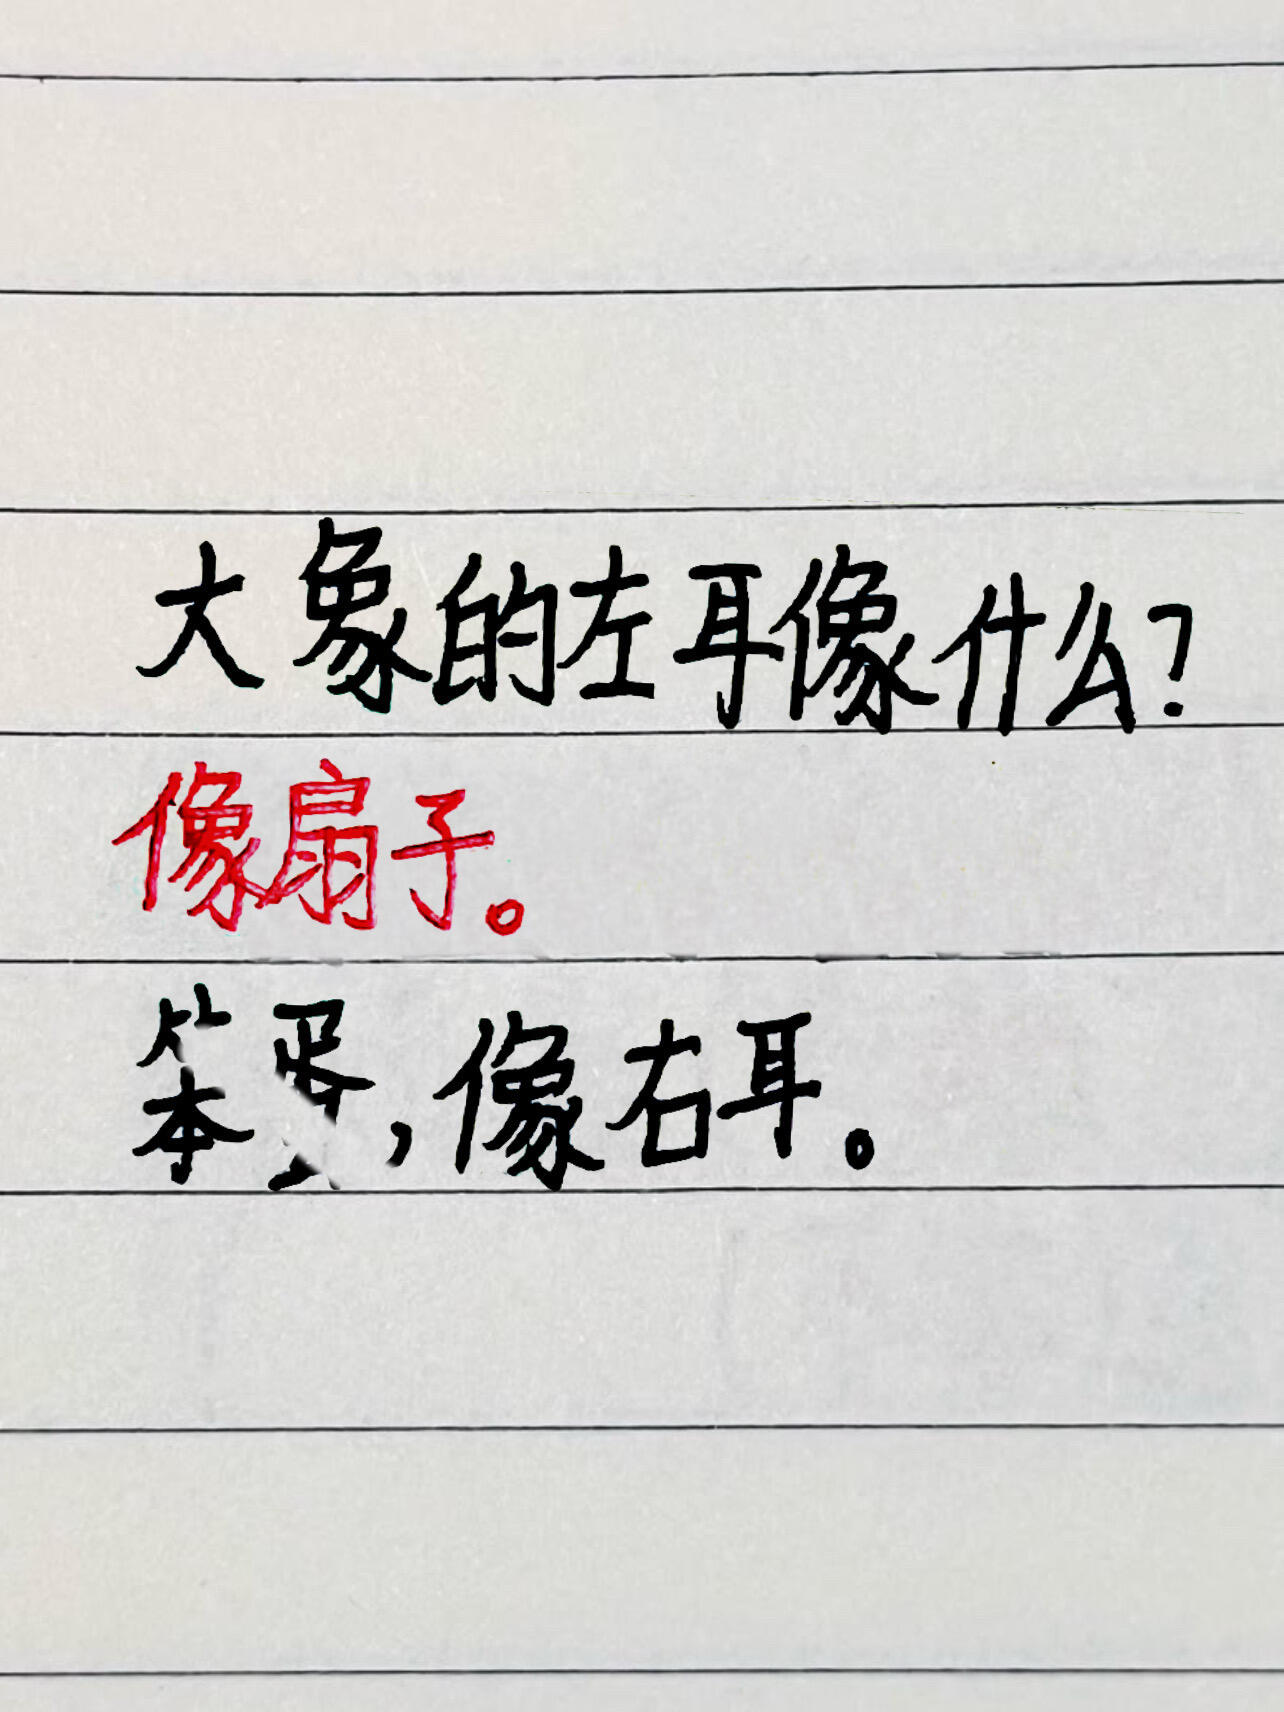 大象的左耳像什么?
像扇子。
笨蛋,像右耳。